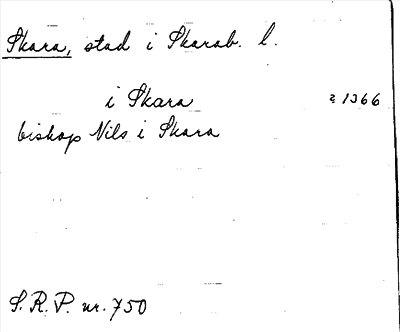 Skara, stad i Skarab. l.
i Skara 1366
biskop Nils i Skara
S. R. P. nr. 750